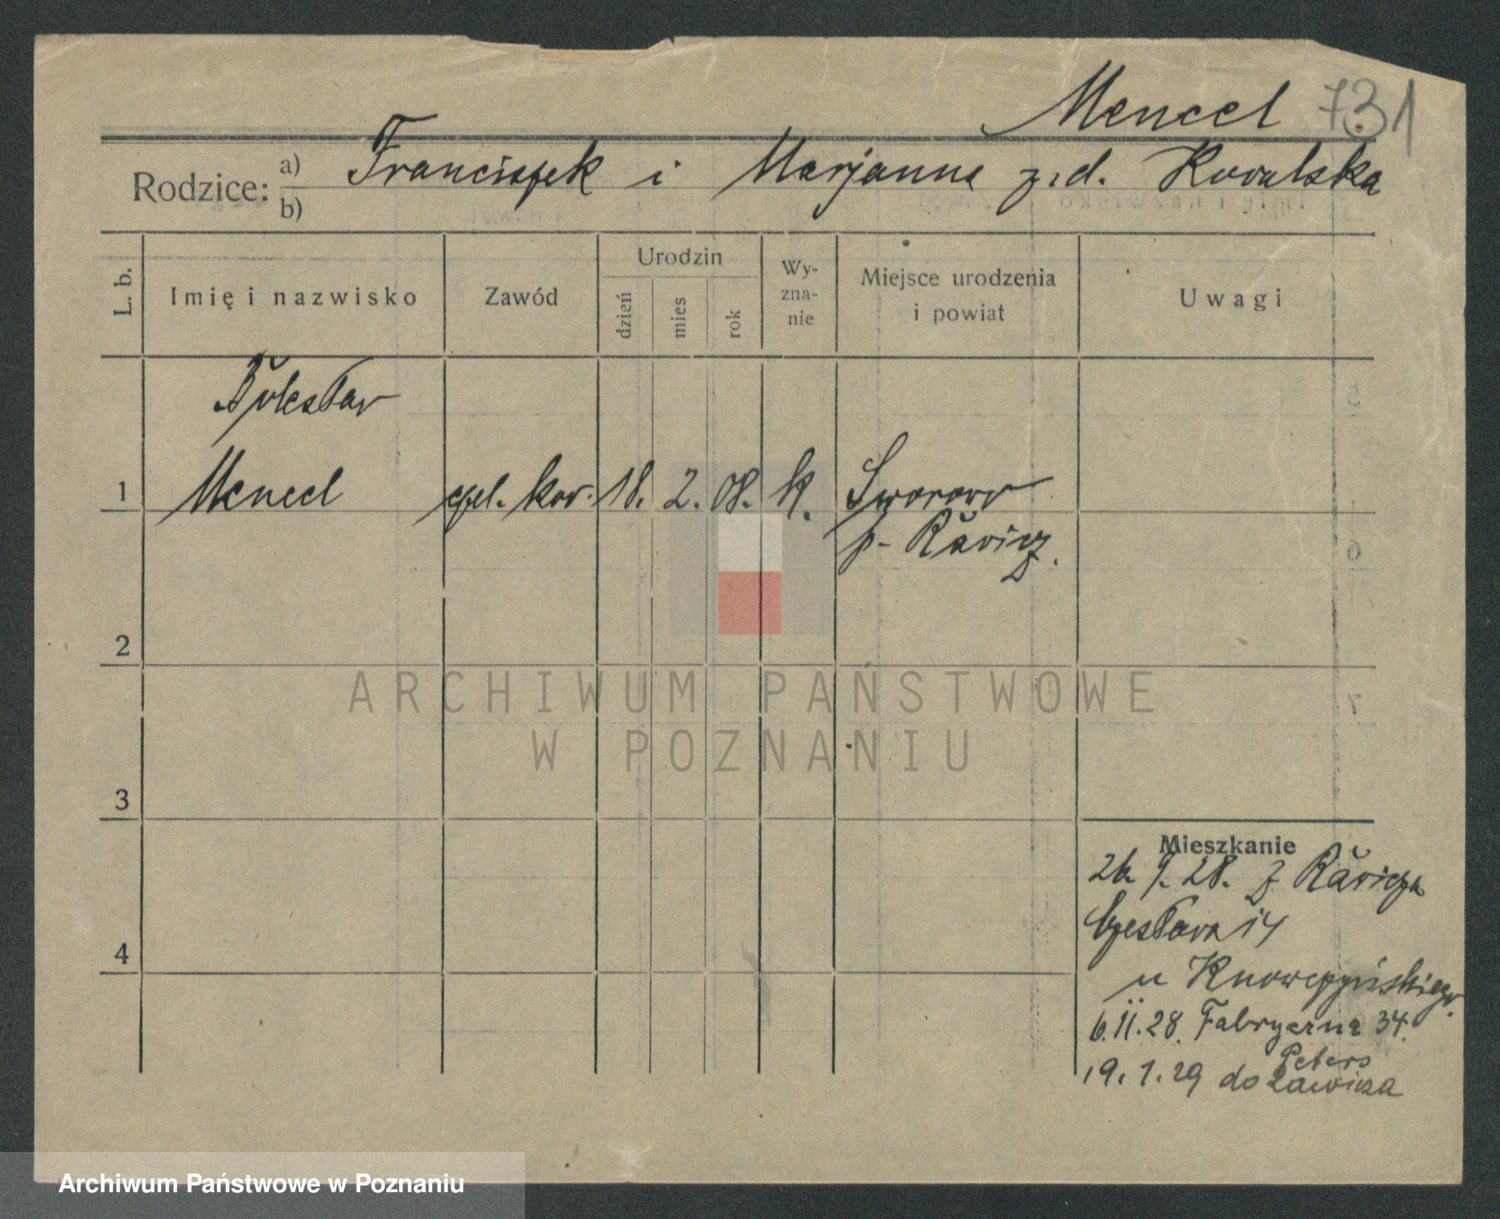 Mencel 731
Rodzice: a) b) Franciszek i Marjanna z d. Kowalska
L. b.
Imię i nazwisko
Zawód
Urodzin
dzień
mies
rok
Wy-
zna-
nie
Miejsce urodzenia
i powiat
Uwagi
Bolesław
1 Mencel czel. kow. 18. 2. 08. k.
p. Rawicz.
2
3
4
ARCHIWUM PAŃSTWOWE
W POZNANIU
Mieszkanie
26. 9. 28. z Rawicza
Czesława 14
u
6.11.28. Fabryczna 34.
Peters
19.1.29 do Rawicza
Archiwum Państwowe w Poznaniu